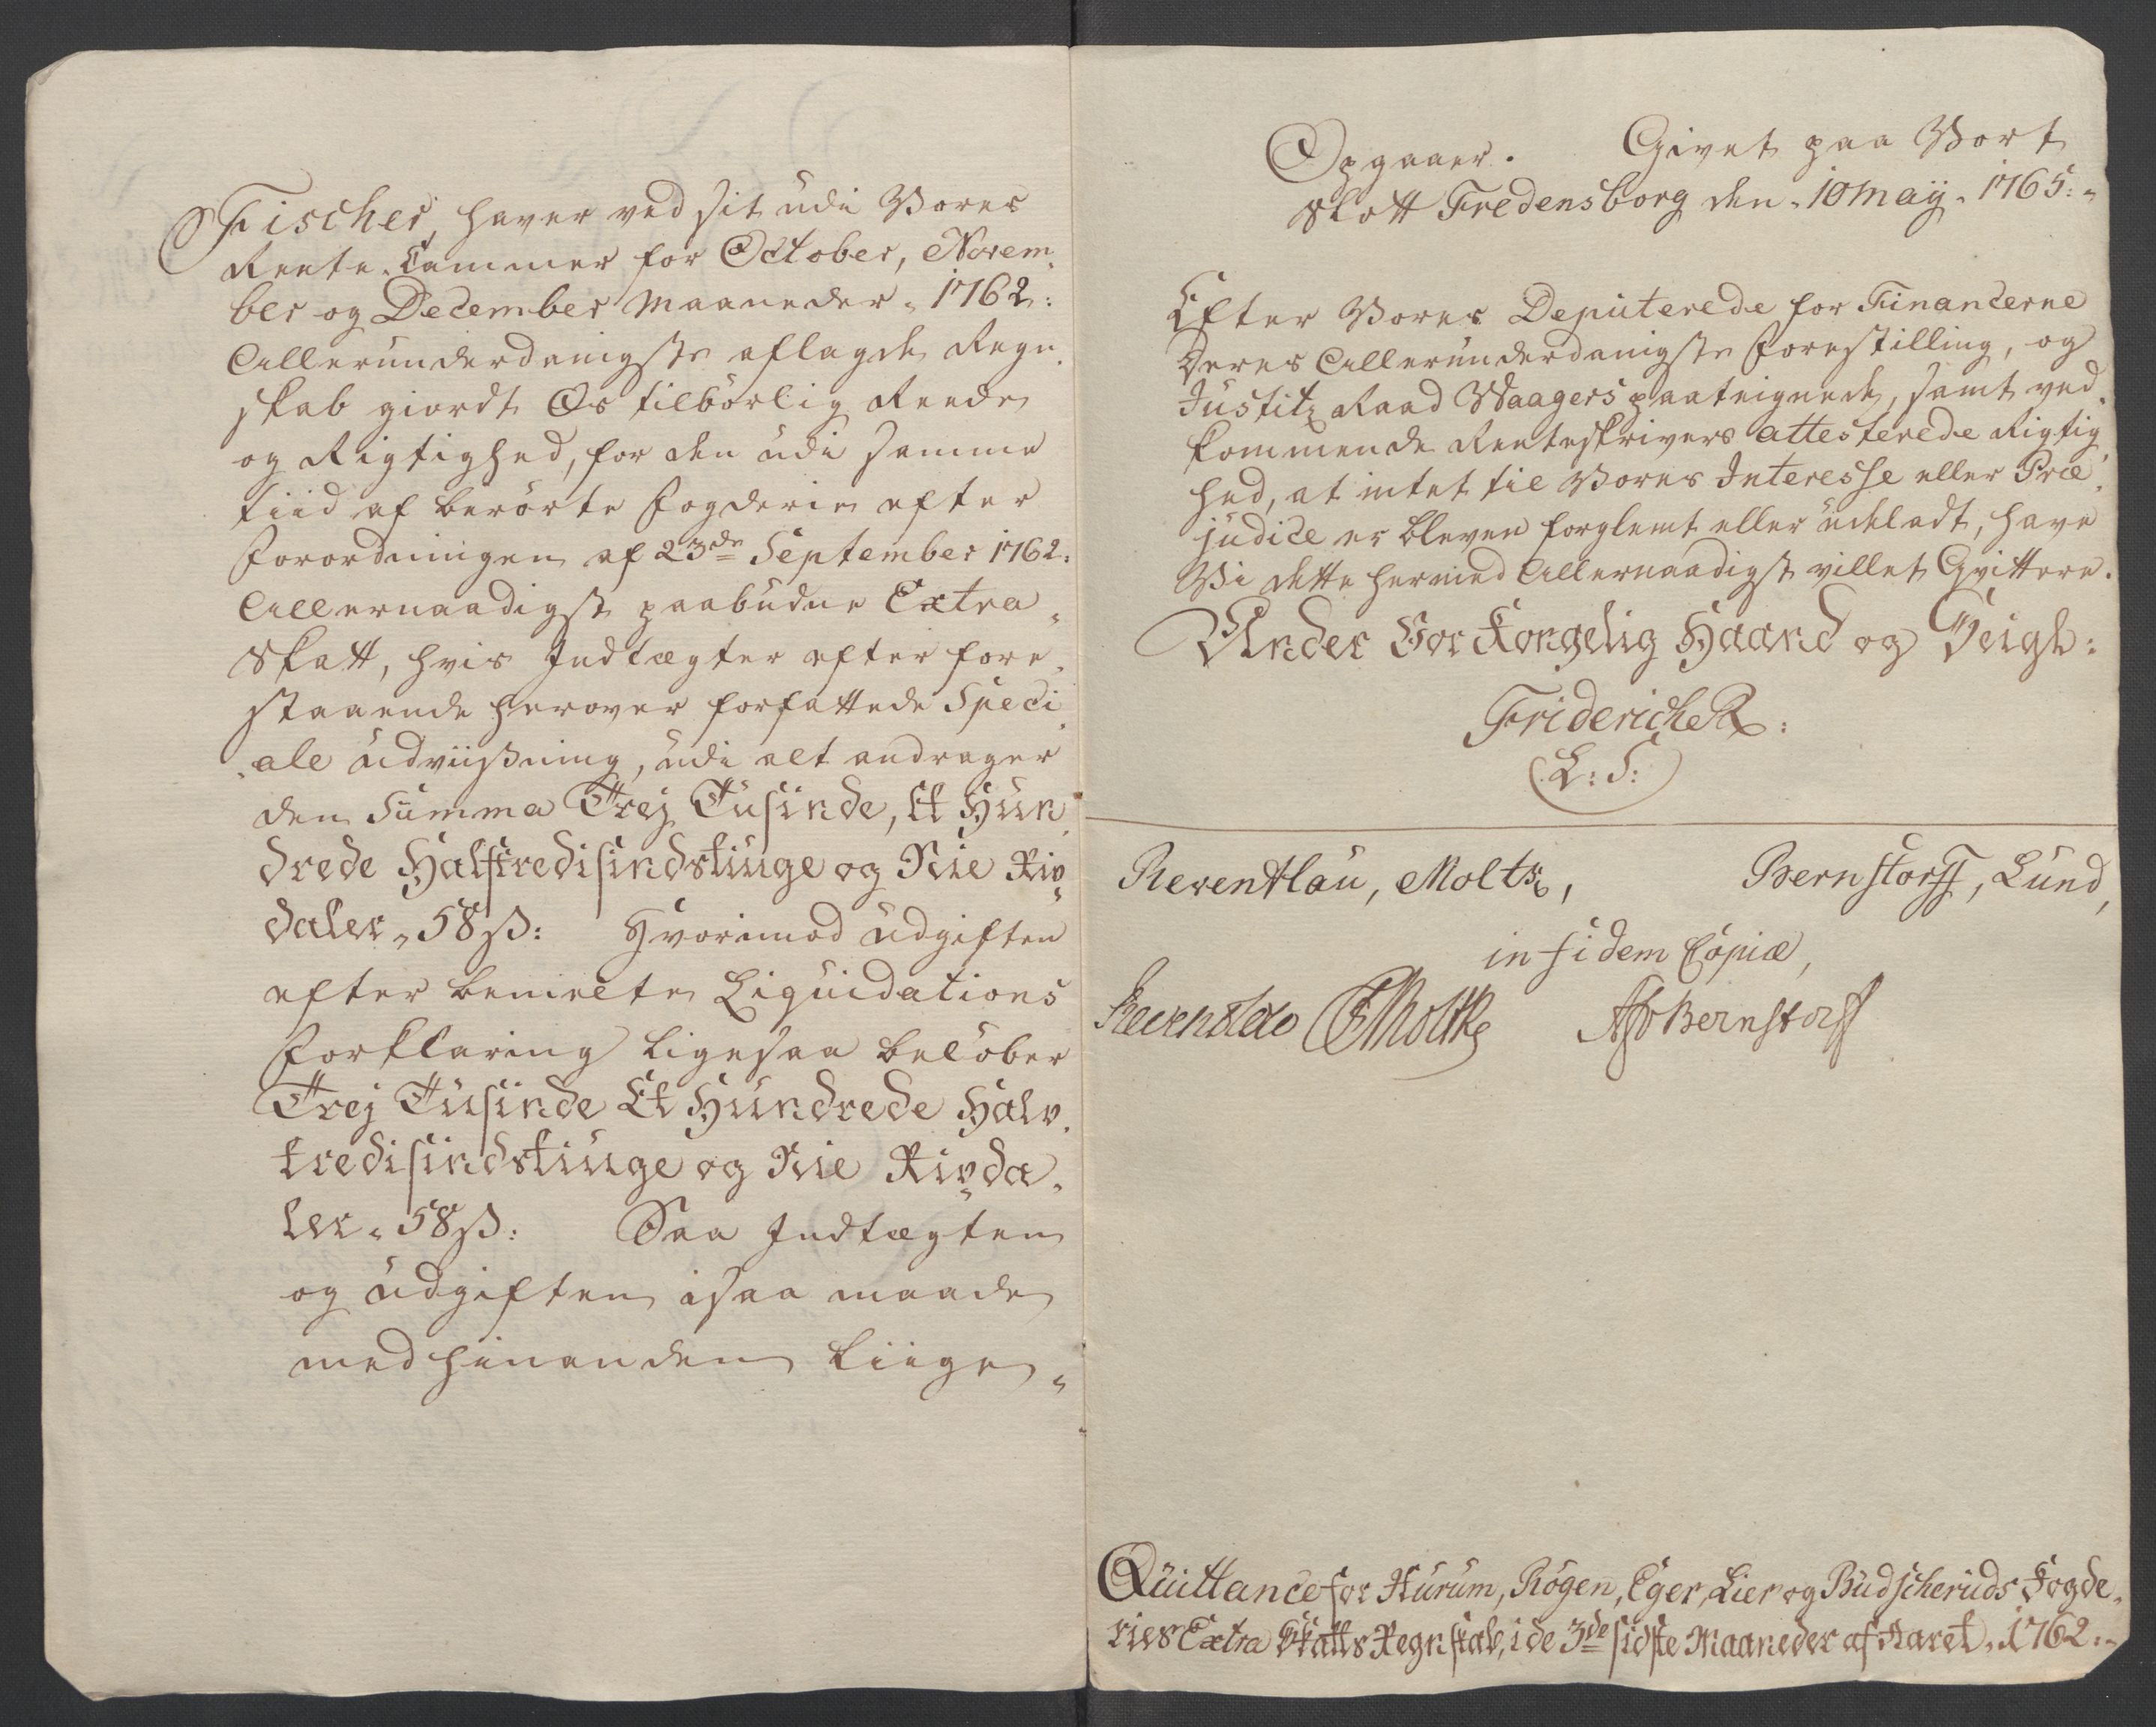 Fischer, haver ved sit udi Vores
Rente-Cammer for October, Novem-
ber og December Maaneder 1762:
Allerunderdanigste aflagde Regn-
skab giordt Os tilbørlig Reede
og Rigtighed, for den udi samme
tiid af berørte Fogderie efter
Forordningen af 23de September 1762:
Allernaadigst paabudne Extra-
Skatt, hvis Indtægter efter fore-
staaende herover forfattede Speci-
ale udviisning, udi alt andrager
den Summa Trej Tusinde, Et Hun-
drede Halftredisindstiuge og Nie Rix-
daler 58 ß: Hvorimod Udgiften
efter bemelte Liquidations
Forklaring ligesaa beløber
Trej Tusinde Et Hundrede Halv-
tredisindstiuge og Nie Rixda-
ler 58 ß: Saa Indtægten
og Udgiften isaa maade
med hinanden liige
Opgaaer. Givet paa Vort
Slott Fredensborg den 10 Maÿ 1765:
Efter Vores Deputerede for Financerne
Deres Allerunderdanigste Forestilling, og
Justitz Raad Waagers paateignede, samt ved-
kommende Renteskrivers attesterede Rigtig-
hed, at intet til Vores Interesse eller Præ-
judice er bleven forglemt eller udeladt, have
Vi dette hermed Allernaadigst villet Qvittere.
Under Vor Kongelig Haand og Seigl:
Friderich R:
(L: S:)
Reventlau, Moltke, Bernstorff, Lund,
in fidem Copiæ,
Reventlow Moltke Bernstorff
Quittance for Hurum, Røgen, Eger, Lier og Budscheruds Fogde-
ries Extra Skatts Regnskab, i de 3de sidste Maaneder af Aaret 1762: